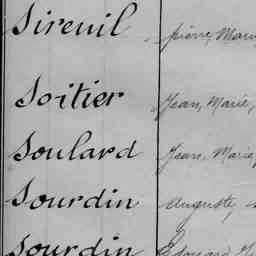 Sireuil pierre, Marie
Soitier Jean, Marie,
Soulard Jean, Marie,
Sourdin Auguste,
Sourdin Edouard